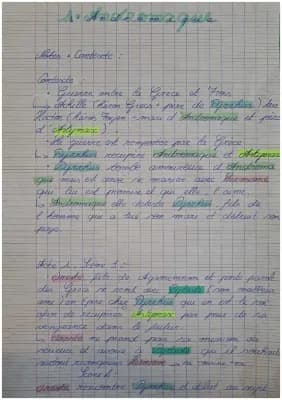 1. Andromaque
Notes + Contexte :
Contexte
• Guerre entre la Grèce et Troie
↳ Achille (héros Grec + père de Pyrrhus) tue
Hector (héros Troyen - mari d'Andromaque et père
d'Astyanax).
• La guerre est remportée par la Grèce
↳ Pyrrhus récupère Andromaque et Astyanax
↳ Pyrrhus tombe amoureux d'Andromaque
qui mais est censé se marier avec Hermione
qui lui est promise et qui elle l'aime.
↳ Andromaque elle déteste Pyrrhus, fils de
l'homme qui a tué son mari et détruit son
pays.
Acte 1 - Scène 1 :
Oreste fils de Agamemnon et
des Grecs se rend avec Pylade (son meilleur
ami) en Epire chez Pyrrhus qui en est le roi
afin de récupérer Astyanax par peur de sa
vengeance dans le futur.
Oreste ne prend pas sa mission au
sérieux et avoue à Pylade qu'il
Hermione
Scène 2
Oreste rencontre Pyrrhus et